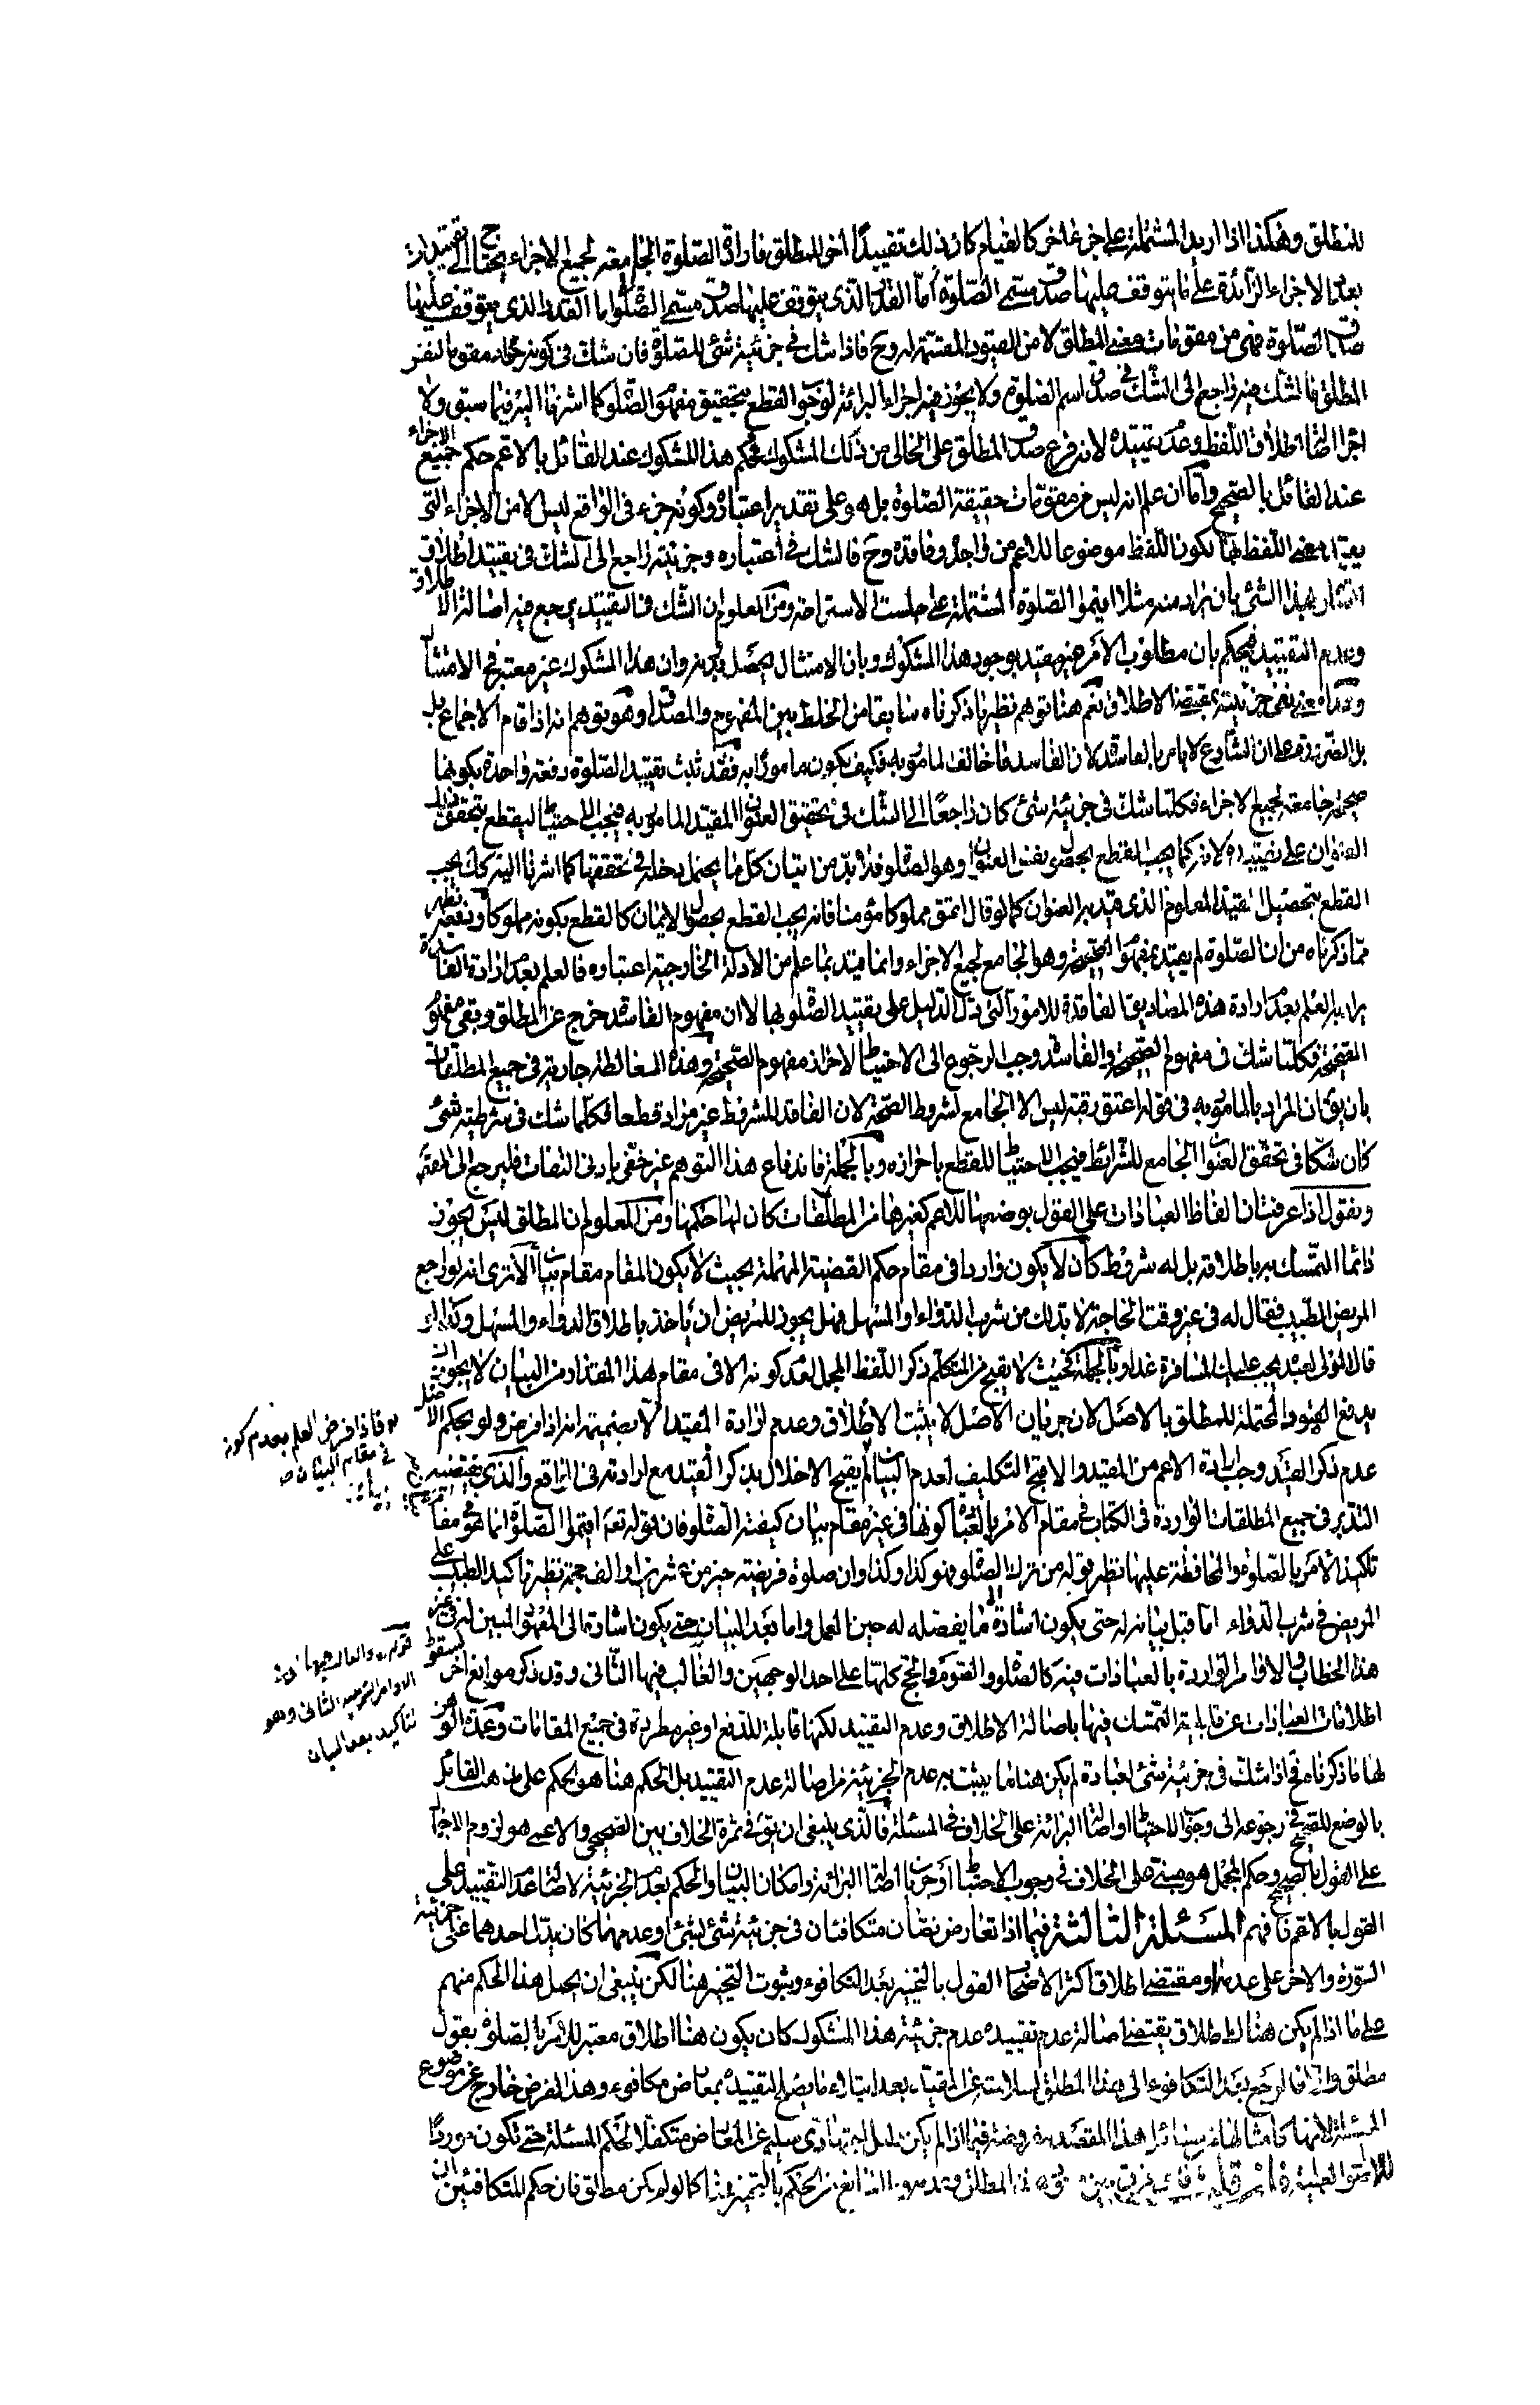 للمطلق وهكذا اذا اريد المشتملة على جزء اخر كالقيام كان ذلك تقييدا اخر للمطلق فارادة الصلوة الجامعة لجميع الاجزاء يحتاج الى تقييدات
بعدد الاجزاء الزائدة على ما يتوقف عليها صدق مسمى الصلوة اما القدر الذى يتوقف عليها صدق مسمى الصلوة اما القدر الذى يتوقف عليها
صدق الصلوة فهى من مقومات معنى المطلق لا من القيود المقسمة له وح فاذا شك فى جزئية شئ للصلوة فان شك فى كونه جزء مقوما لنفس
المطلق فالشك فيه راجع الى الشك فى صدق اسم الصلوة ولا يجوز فيه اجراء البرائة لوجوب القطع بتحقيق مفهوم الصلوة كما اشرنا اليه فيما سبق ولا
اجراء اصالة اطلاق اللفظ وعدم تقييده لانه فرع صدق المطلق على الخالى من ذلك المشكوك فحكم هذا المشكوك عند القائل بالاعم حكم جميع الاجزاء
عند القائل بالصحيح واما ان علم انه ليس من مقومات حقيقة الصلوة بل هو على تقدير اعتباره وكونه جزء فى الواقع ليس الا من الاجزاء التى
يقيد معنى اللفظ بها لكون اللفظ موضوعا للاعم من واجده وفاقده وح فالشك فى اعتباره وجزئيته راجع الى الشك فى تقييد اطلاق
الصلوة بهذا الشئ بان يراد منه مثلا اقيموا الصلوة المشتملة على جلسة الاستراحة ومن المعلوم ان الشك فى التقييد يرجع فيه اصالة الاطلاق
وعدم التقييد فيحكم بان مطلوب الامر غير مقيد بوجود هذا المشكوك وبان الامتثال يحصل بدونه وان هذا المشكوك غير معتبر فى الامتثال
وهذا معنى نفى جزئيته بمقتضى الاطلاق نعم هنا توهم نظير ما ذكرناه سابقا من الخلط بين المفهوم والمصداق وهو توهم انه اذا قام الاجماع بل
بل الضرورة على ان الشارع لا يامر بالفاسدة لان الفاسد ما خالف المامور به فكيف يكون مامورا به فقد ثبت تقييد الصلوة دفعة واحدة بكونها
صحيحة جامعة لجميع الاجزاء فكلما شك فى جزئية شئ كان راجعا الى الشك فى تحقيق العنوان المقيد المامور به فيجب الاحتياط ليقطع بتحقق ذلك
العنوان على تقييده لانه كما يجب القطع بحصول نفس العنوان وهو الصلوة فلا بد من اتيان كل ما يحتمل دخله فى تحققها كما اشرنا اليه كك يجب
القطع بتحصيل القيد المعلوم الذى قيد به العنوان كما لو قال اعتق مملوكا مؤمنا فانه يجب القطع بحصول الايمان كالقطع بكونه مملوكا ودفعه يظهر
مما ذكرناه من ان الصلوة لم يقيد بمفهوم الصحيحة وهو الجامع لجميع الاجزاء وانما قيد بما علم من الادلة الخارجية اعتباره فالعلم بعدم ارادة الفاسدة
يراد به العلم بعدم ارادة هذه المصاديق الفاقدة للامور التى دل الدليل على تقييد الصلوة بها لا ان مفهوم الفاسدة خرج عن المطلق وبقى مفهوم
الصحيحة فكلما شك فى مفهوم الصحيحة والفاسدة وجب الرجوع الى الاحتياط لاحراز مفهوم الصحيحة وهذه المغالطة جارية فى جميع المطلقات
بان يق ان المراد بالمامور به فى قوله اعتق رقبة ليس الا الجامع لشروط الصحة لان الفاقد للشروط غير مراد قطعا فكلما شك فى شرطية شئ
كان شكا فى تحقق العنوان الجامع للشرائط فيجب الاحتياط للقطع باحرازه وبالجملة فاندفاع هذا التوهم غير خفى بادنى التفات فليرجع الى المقصد
ونقول اذا عرفت ان الفاظ العبادات على القول بوضعها للاعم كغيرها من المطلقات كان لها حكمها ومن المعلوم ان المطلق ليس يجوز
دائما التمسك به باطلاقه بل له شروط كان لا يكون واردا فى مقام حكم القضية المهملة بحيث لا يكون المقام مقام بيان الا ترى انه لو راجع
المريض الطبيب فقال له فى غير وقت الحاجة لا بد لك من شرب الدواء او المسهل فهل يجوز للمريض ان ياخذ باطلاق الدواء والمسهل وكذا لو
قال المولى لعبده يجب عليك المسافرة غدا وبالجملة فحيث لا يقبح من المتكلم ذكر اللفظ المجمل لعدم كونه الا فى مقام هذا المقدار من البيان لا يجوز ان
يدفع القيود المحتملة للمطلق بالاصل لان جريان الاصل لا يثبت الاطلاق وعدم ارادة المقيد الا بضميمة انه اذا فرض ولو بحكم الاصل
عدم ذكر القيد وجب ارادة الاعم من المقيد والا قبح التكليف لعدم البيان لم يقبح الاخلال بذكر القيد مع ارادته فى الواقع والذى يقتضيه
التدبر فى جميع المطلقات الواردة فى الكتاب فى مقام الامر بالعبادة كونها فى غير مقام بيان كيفية الصلوة فان قوله تعم اقيموا الصلوة انما هو فى مقام
تاكيد الامر بالصلوة والمحافظة عليها نظير قوله من ترك الصلوة فهو كذا وكذا وان صلوة فريضة خير من عشرين او الف حجة نظير تاكيد الطبيب على
المريض فى شرب الدواء اما قبل بيانه له حتى يكون اشارة الى ما يفصله له حين العمل واما بعد البيان حتى يكون اشارة الى المعهود المبين له فى غير
هذا الخطاب والاوامر الواردة بالعبادات فيه كالصلوة والصوم والحج كلها على احد الوجهين والغالب فيها الثانى وقد ذكر موانع اخر لسقوط
اطلاقات العبادات عن قابلية التمسك فيها باصالة الاطلاق وعدم التقييد لكنها قابلة للدفع او غير مطردة فى جميع المقامات وعمدة الموهن
لها ما ذكرناه فح اذا شك فى جزئية شئ لعبادة لم يكن هنا ما يثبت به عدم الجزئية من اصالة عدم التقييد بل الحكم هنا هو الحكم على مذهب القائل
بالوضع للصحيح فى رجوعه الى وجوب الاحتياط او اصالة البرائة على الخلاف فى المسئلة فالذى ينبغى ان يق فى ثمرة الخلاف بين الصحيحى والاعمى هو لزوم الاجمال
على القول بالصحيح وحكم المجمل هو مبنى على الخلاف فى وجوب الاحتياط او جريان اصالة البرائة وامكان البيان والحكم بعدم الجزئية لاصالة عدم التقييد على
القول بالاعم فافهم المسئلة الثالثة فيما اذا تعارض نصان متكافئان فى جزئية شئ لشئ وعدمها كان يدل احدهما على جزئية
السورة والاخر على عدمها ومقتضى اطلاق اكثر الاصحاب القول بالتخيير بعد التكافوء وثبوت التخيير هنا لكن ينبغى ان يحمل هذا الحكم منهم
على ما اذا لم يكن هناك اطلاق يقتضى اصالة عدم تقييده عدم جزئية هذا المشكوك كان يكون هنا اطلاق معتبر للامر بالصلوة بقول
مطلق والا فالمرجع بعد التكافوء الى هذا المطلق لسلامته عن المقيد بعد ابتلاء ما يصلح لتقييده بمعارض مكافوء وهذا الفرض خارج عن موضوع
المسئلة لانها كامثالها من مسائل هذا المقصد مفروضة فيما اذا لم يكن دليل اجتهادى سليم عن المعارض متكفلا لحكم المسئلة حتى تكون موردا
للاصول العملية فان قلت فاى فرق بين وجود هذا المطلق وعدمه وما المانع من الحكم بالتخيير هنا كما لو لم يكن مطلق فان حكم المتكافئين ان
فاذا فرض العلم بعدم كونه
فى مقام البيان
قوله والغالب فيها
الاوامر الثانى وهو
لتاكيد بعد البيان